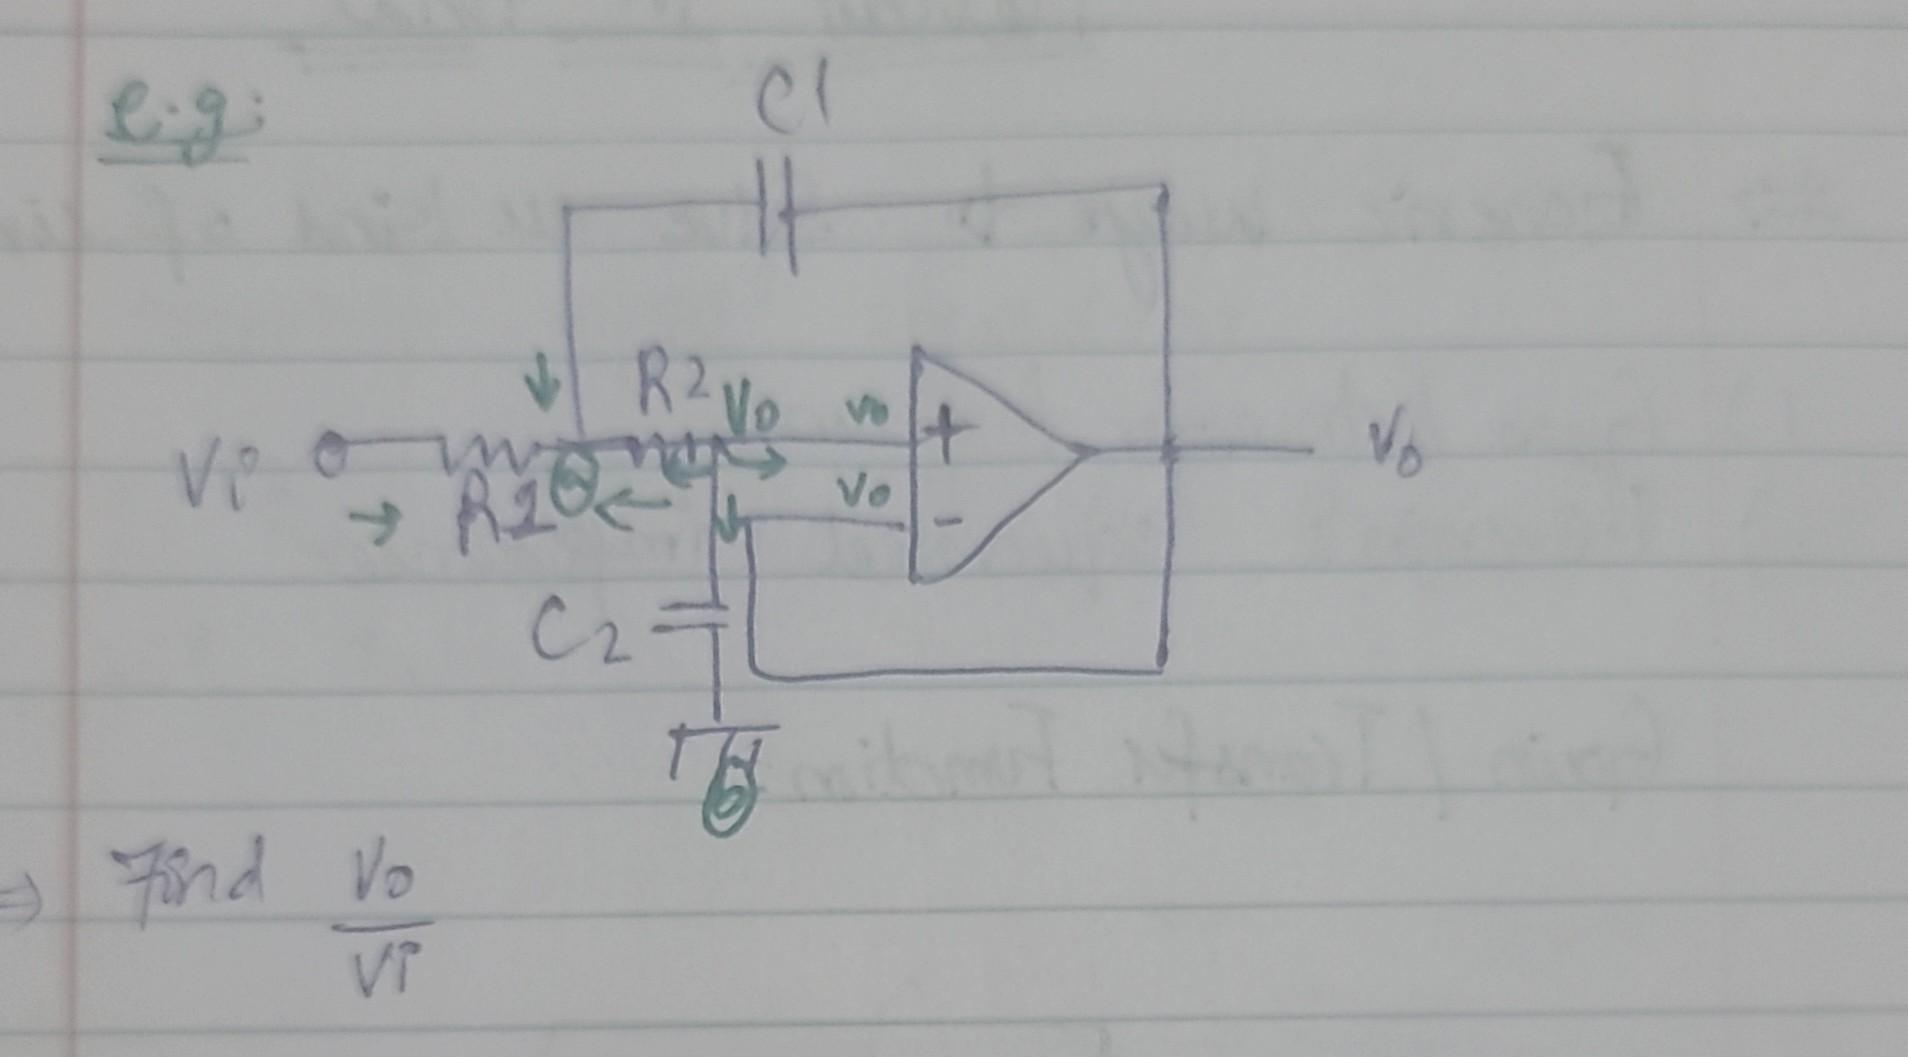 e.g:
C1
R2 Vo vo
+
Vi Vo
R1
vo
-
C2
⇒ Find Vo
Vi